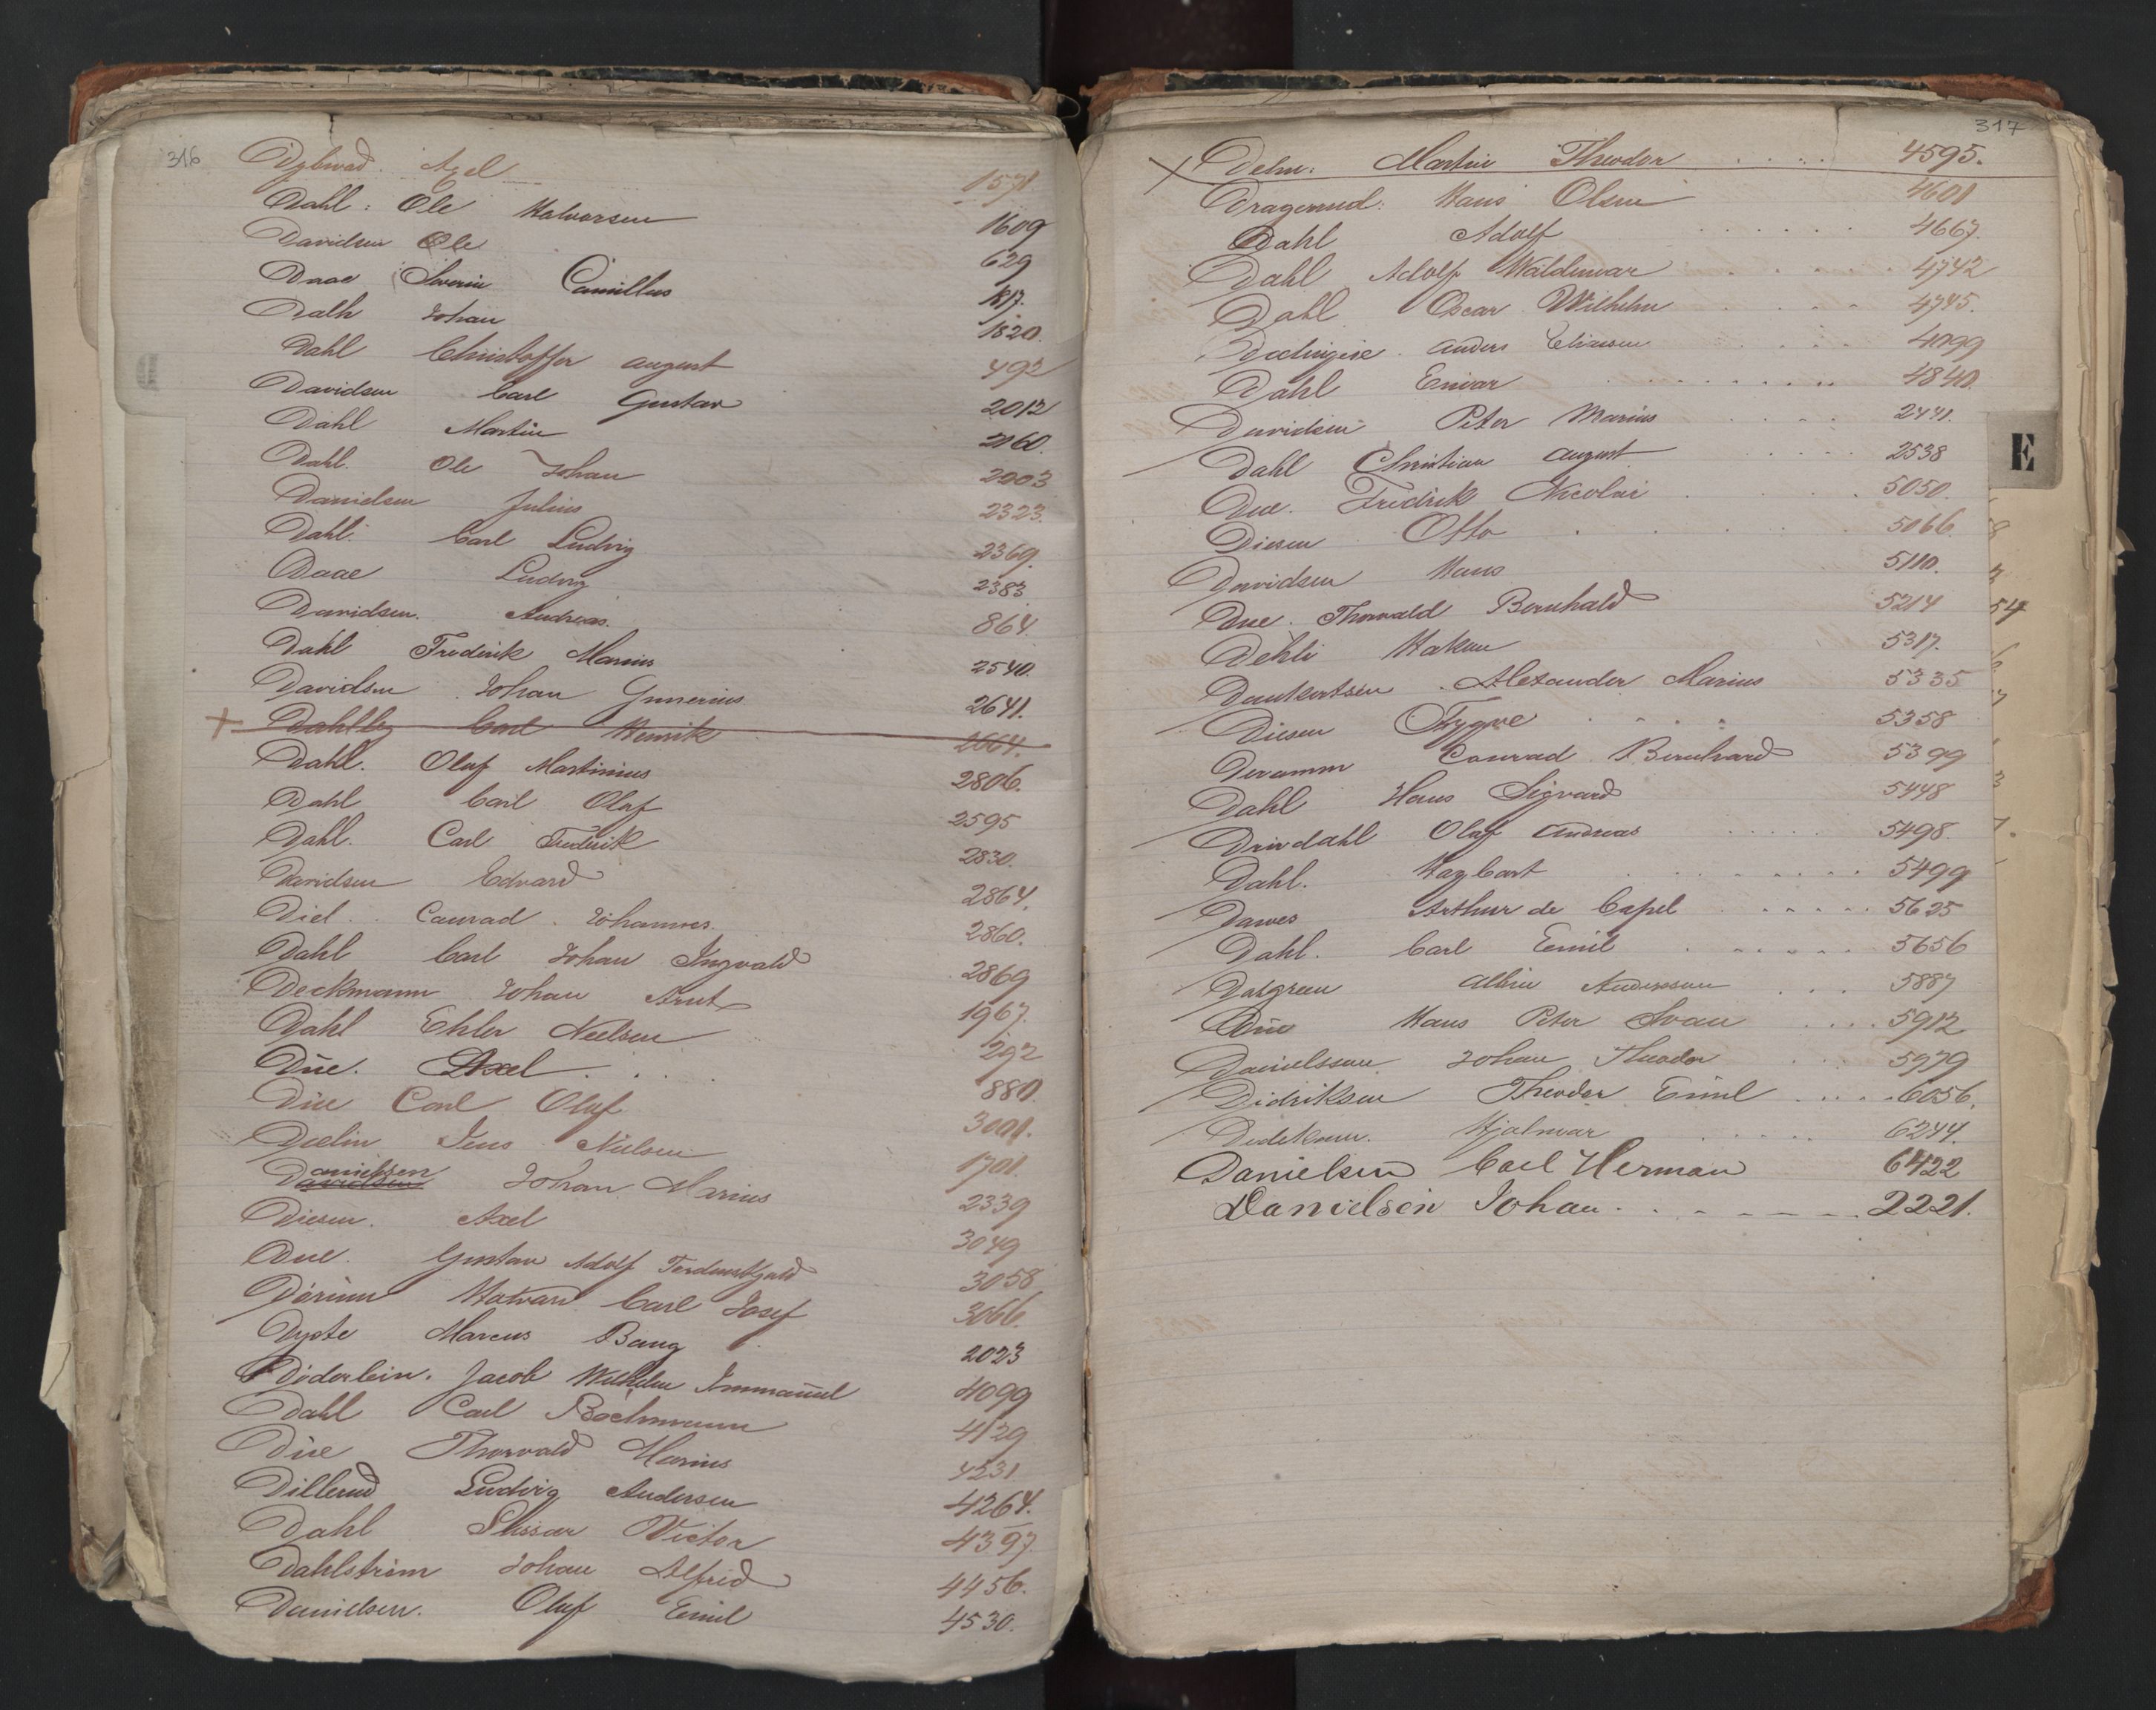 316
Dybwad. Axel 1571.
Dahl. Ole Halvorsen 1609
Davidsen Ole 629
Daae Severin Camillus 1817.
Dalh Johan 1820.
Dahl Christoffer August 492
Davidsen Carl Gustav 2012
Dahl Martin 2160.
Dahl. Ole Johan 2203
Danielsen Julius 2323.
Dahl. Carl Ludvig 2369.
Daae Ludvig 2383
Davidsen. Andreas. 864.
Dahl Fredrik Marius 2540.
Davidsen Johan Gunerius 2641.
+ Carl Henrik 2664.
Dahl. Oluf Martinius 2806.
Dahl Carl Olaf 2595
Dahl. Carl Fredrik 2830.
Davidsen Edvard 2864.
Diel. Conrad. Johannes. 2860.
Dahl Carl Johan Ingvald 2869
Deckmann Johan Arnt 1967.
Dahl Ehler Neelsen 292
Due. Axel . . . 880.
Due Carl Oluf 3001.
Dælin Jens Nielsen 1701.
Danielsen Davidsen Johan Marius 2339
Diesen. Axel 3049
Due. Gustav Adolf 3058
Carl Josef 3066.
Dyste Marcus Bang 2023
Döderlein. Jacob Wilhelm Immanuel 4099
Dahl Carl 4129
Due Thorvald Marius 4231
Dillerud Ludvig Andersen 4264.
Dahl Victor 4397.
Dahlström Johan Alfred 4456.
Danielsen. Oluf Emil 4530.
317
Dehn. Martin Theodor . . . . 4595.
Hans Olsen 4601
Dahl Adolf . . . . . . 4667.
Dahl Adolf Waldemar . . . . 4742
Dahl Oscar Wilhelm . . . . 4745.
Anders . . . 4099
Dahl Einar . . . . . . . . 4840.
Davidsen Peter Marius . . . 2441.
Dahl Christian August . . . . 2538
Due. Fredrik Nicolai . . . . 5050.
Diesen Otto . . . . 5066.
Davidsen Hans 5110.
Due. Thorvald Bernhald 5214
Dehli Hakon 5317.
Dankertsen. Alexander Marius 5335
Diesen Trygve . . . . 5358
Conrad Bernhard 5399
Dahl Hans Sigvard 5448
Drivdahl Olaf Andreas . . . . . 5498.
Dahl. Hagbart . . . . . . . . 5499
Dawes Arthur de Capel . . . . . . 5625
Dahl. Carl Emil . . . . . . 5656
Dalgren Albin Anderssen . . . 5887
Due Hans Peter Svan . . . . 5912
Danielssen Johan Theodor . . . 5979
Didriksen Theodor Emil . . . . . 6056.
Hjalmar . . . . . . 6244.
Danielsen Carl Herman 6422
Danielsen Johan. . . . . . . . 2221.
E
54